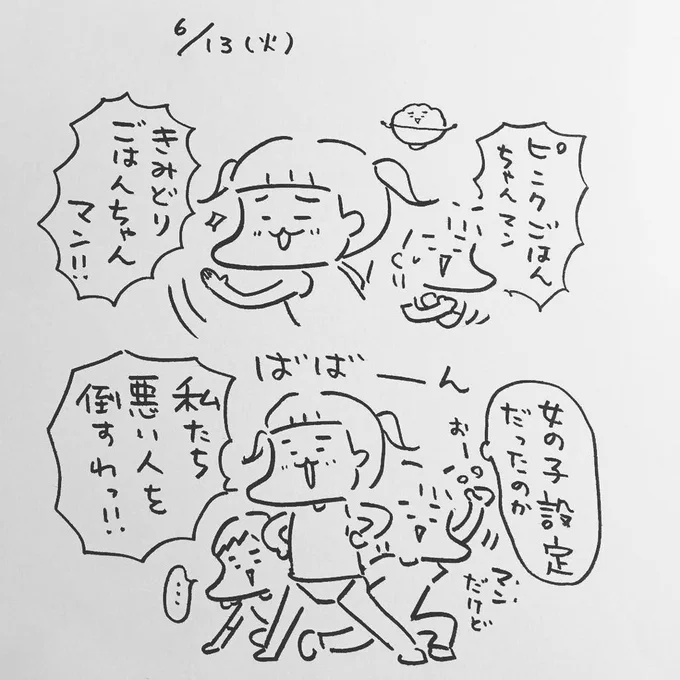 6/13(火)
ピンクごはん
ちゃんマン
きみどり
ごはんちゃん
マン!!
ばばーん
女の子設定
だったのか
おー
マン
だけど
私たち
悪い人を
倒すわっ!!
…